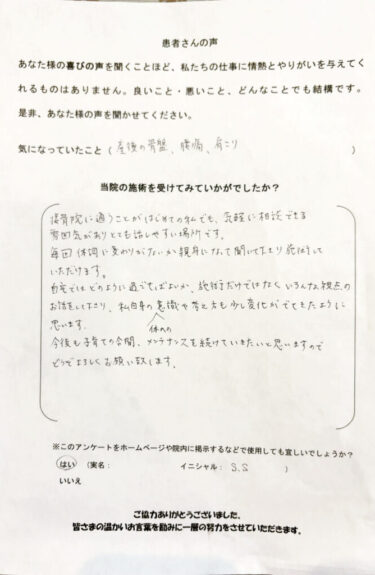 患者さんの声
あなた様の喜びの声を聞くことほど、私たちの仕事に情熱とやりがいを与えてく
れるものはありません。良いこと・悪いこと、どんなことでも結構です。
是非、あなた様の声を聞かせてください。
気になっていたこと（ 産後の骨盤、腰痛、肩こり ）
当院の施術を受けてみていかがでしたか？
接骨院に通うことがはじめての私でも、気軽に相談できる
雰囲気がありとても話しやすい場所です。
毎回体調に変わりがないか親身になって聞いて下さり施術して
いただけます。
自宅ではどのように過ごせばよいか、施術だけではなくいろんな視点の
お話をして下さり、私自身の意識や考え方も少し変化がでてきたように
思います。
体の
今後も子育ての合間、メンテナンスを続けていきたいと思いますので
どうぞよろしくお願い致します。
※このアンケートをホームページや院内に掲示するなどで使用しても宜しいでしょうか？
はい （実名： イニシャル： S.S ）
いいえ
ご協力ありがとうございました。
皆さまの温かいお言葉を励みに一層の努力をさせていただきます。